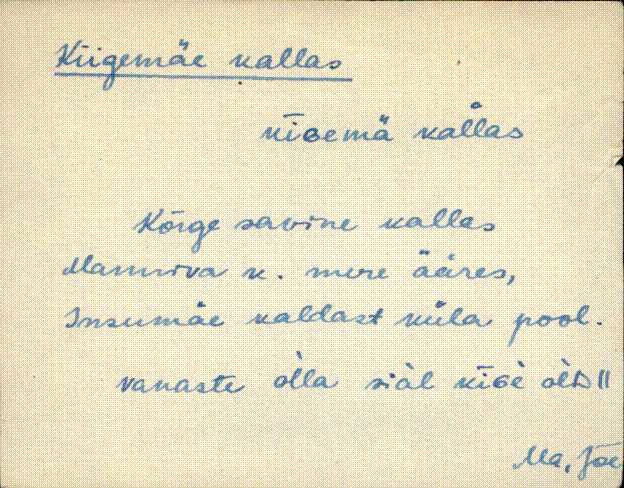 Kiigemäe kallas
kīɢemä kall̀as
Kõrge savine kallas
Manniva k. mere ääres,
Insumäe kaldast küla pool.
vanaste òlla siàl kīɢè òlD॥
Ma, Jõe